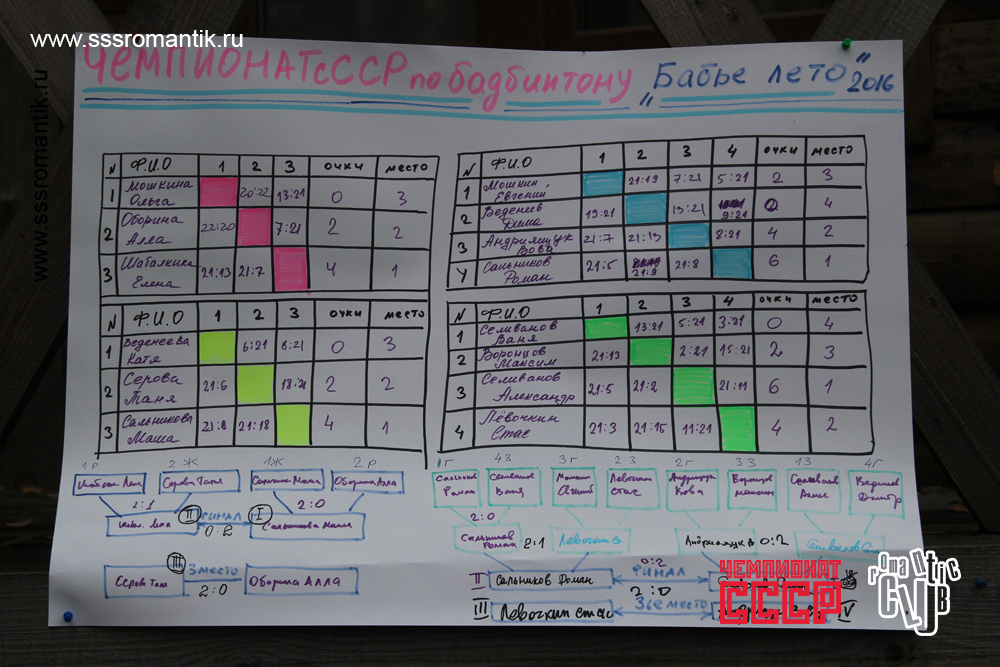 www.sssromantik.ru
www.sssromantik.ru
ЧЕМПИОНАТ СССР по бадбинтону „Бабье лето" 2016
N Ф.И.О 1 2 3 очки место
1 Мошкина Ольга 20:22 13:21 0 3
2 Оборина Алла 22:20 7:21 2 2
3 Шаболкина Елена 21:13 21:7 4 1
N Ф.И.О 1 2 3 4 очки место
1 Мошкин Евгений 21:19 7:21 5:21 2 3
2 Веденеев Дима 19:21 15:21 9:21 0 4
3 Андримщук Вова 21:7 21:15 8:21 4 2
4 Сальников Роман 21:5 21:9 21:8 6 1
N Ф.И.О 1 2 3 очки место
1 Веденеева Катя 6:21 8:21 0 3
2 Серова Таня 21:6 18:21 2 2
3 Сальникова Маша 21:8 21:18 4 1
N Ф.И.О 1 2 3 4 очки место
1 Селиванов Ваня 13:21 5:21 3:21 0 4
2 Воронцов Максим 21:13 2:21 15:21 2 3
3 Селиванов Александр 21:5 21:2 21:11 6 1
4 Лёвочкин Стас 21:3 21:15 11:21 4 2
1р 2ж 1ж 2р
Серова Таня Оборина Алла
2:1 2:0
II ФИНАЛ I
0:2 Сальникова Маша
III
Серова Таня 3 место Оборина Алла
2:0
1г 43 3г 23 2г 33 13 4г
Сальников Рома Селиванов Ваня Левочкин Стас Андримщук Вова Воронцов
2:0
Сальников Роман 2:1 Левочкин Ст Андримщук В 0:2
0:2
II Сальников Роман ФИНАЛ
2:0
III Левочкин Стас 3ье место IV
ЧЕМПИОНАТ
СССР
romantic
CLUB